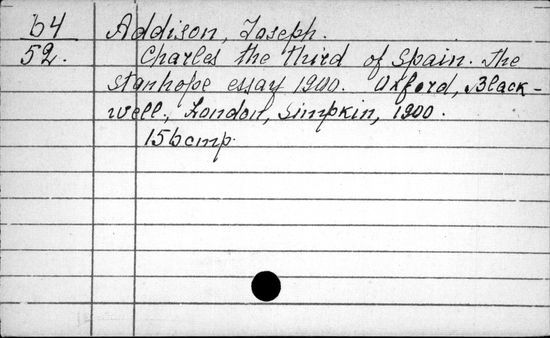 64 Addison, Joseph.
52. Charles the third of Spain. The
stanhope essay 1900. Oxford, Black-
well, London, Simpkin, 1900.
156 cmp.